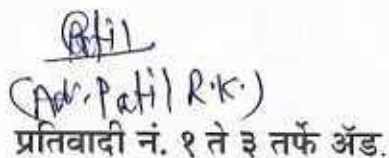 Patil
(Adv. Patil R.K.)
प्रतिवादी नं. १ ते ३ तर्फे ॲड.